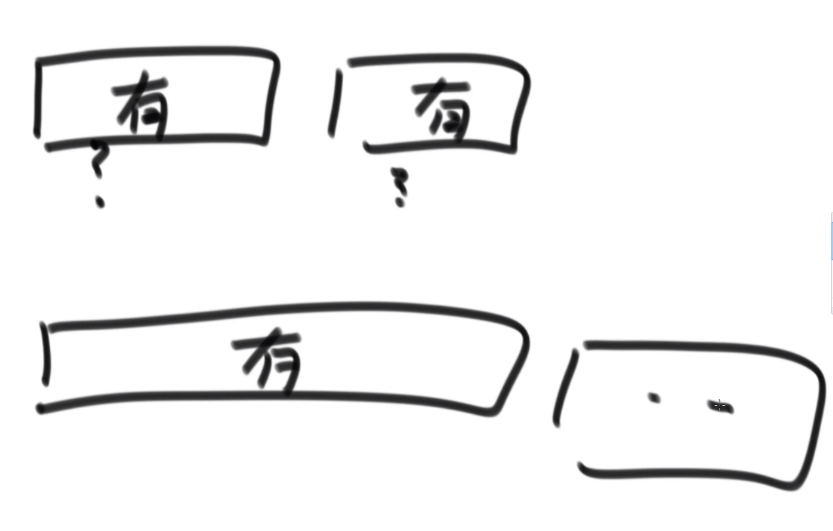 有 有
? ?
有